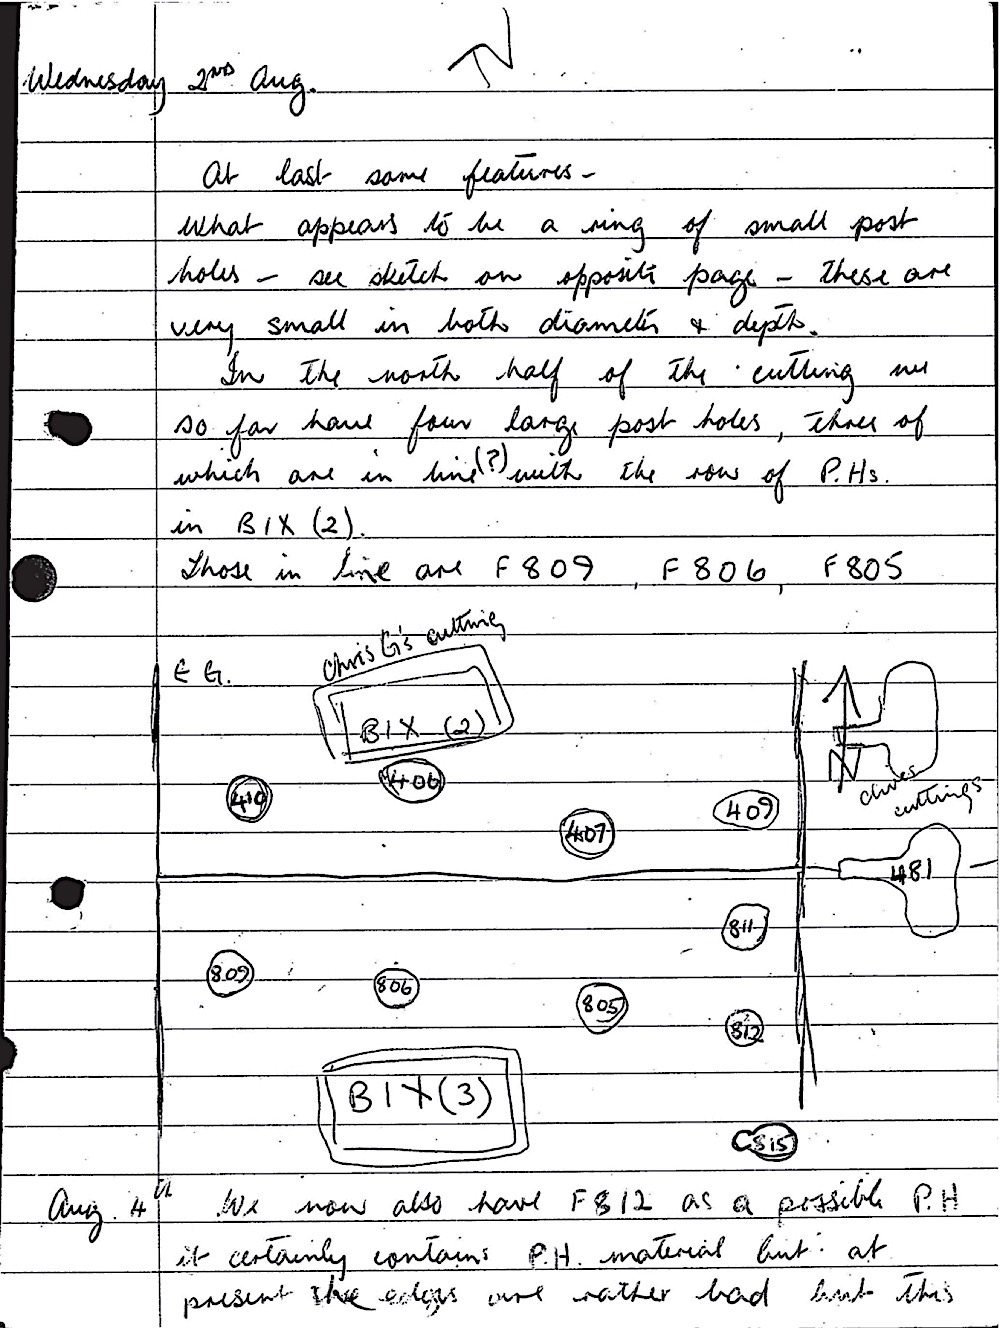 N
Wednesday 2ND Aug.
At last some features -
What appears to be a ring of small post
holes - see sketch on opposite page - these are
very small in both diameter & depth.
In the north half of the cutting we
so far have four large post holes, three of
which are in line(?) with the row of P.Hs.
in BIX (2).
Those in line are F809, F806, F805
E G.
Chris G's cutting
BIX (2)
N
Clives
cuttings
410
406
407
409
481
811
809
806
805
812
BIX (3)
815
Aug. 4th We now also have F812 as a possible P.H
it certainly contains P.H. material but at
present the edges are rather bad but this